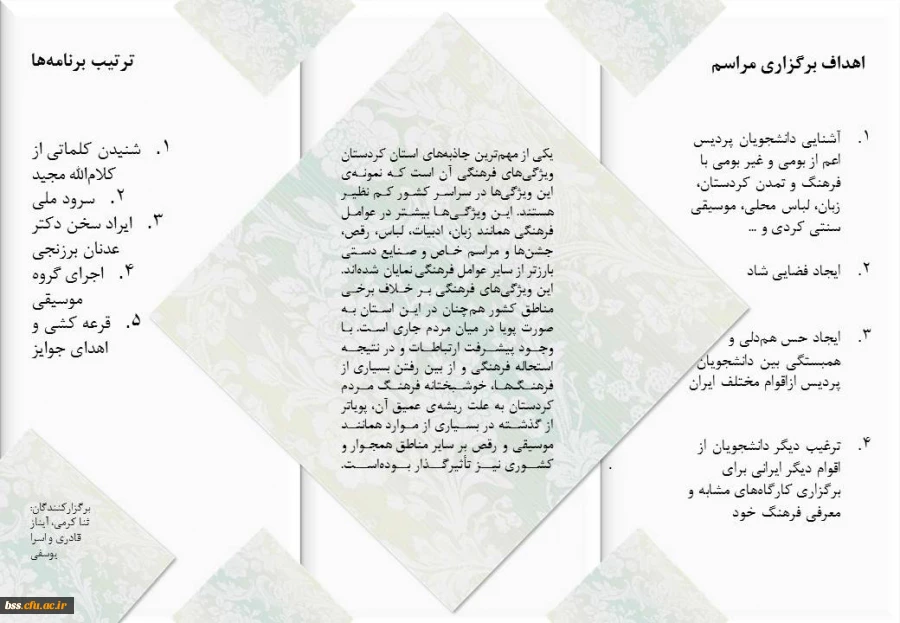 اهداف برگزاری مراسم
۱. آشنایی دانشجویان پردیس
اعم از بومی و غیر بومی با
فرهنگ و تمدن کردستان،
زبان، لباس محلی، موسیقی
سنتی کردی و ...
۲. ایجاد فضایی شاد
۳. ایجاد حس هم‌دلی و
همبستگی بین دانشجویان
پردیس ازاقوام مختلف ایران
۴. ترغیب دیگر دانشجویان از
اقوام دیگر ایرانی برای
برگزاری کارگاه‌های مشابه و
معرفی فرهنگ خود
.
یکی از مهم‌ترین جاذبه‌های استان کردستان
ویژگی‌های فرهنگی آن است که نمونه‌ی
این ویژگی‌ها در سراسر کشور کم نظیر
هستند. این ویژگی‌ها بیشتر در عوامل
فرهنگی همانند زبان، ادبیات، لباس، رقص،
جشن‌ها و مراسم خاص و صنایع دستی
بارزتر از سایر عوامل فرهنگی نمایان شده‌اند.
این ویژگی‌های فرهنگی بر خلاف برخی
مناطق کشور هم‌چنان در این استان به
صورت پویا در میان مردم جاری است. با
وجود پیشرفت ارتباطات و در نتیجه
استحاله فرهنگی و از بین رفتن بسیاری از
فرهنگ‌ها، خوشبختانه فرهنگ مردم
کردستان به علت ریشه‌ی عمیق آن، پویاتر
از گذشته در بسیاری از موارد همانند
موسیقی و رقص بر سایر مناطق همجوار و
کشوری نیز تأثیرگذار بوده‌است.
ترتیب برنامه‌ها
۱. شنیدن کلماتی از
کلام‌الله مجید
۲. سرود ملی
۳. ایراد سخن دکتر
عدنان برزنجی
۴. اجرای گروه
موسیقی
۵. قرعه کشی و
اهدای جوایز
برگزارکنندگان:
ثنا کرمی، آیناز
قادری و اسرا
یوسفی
bss.cfu.ac.ir